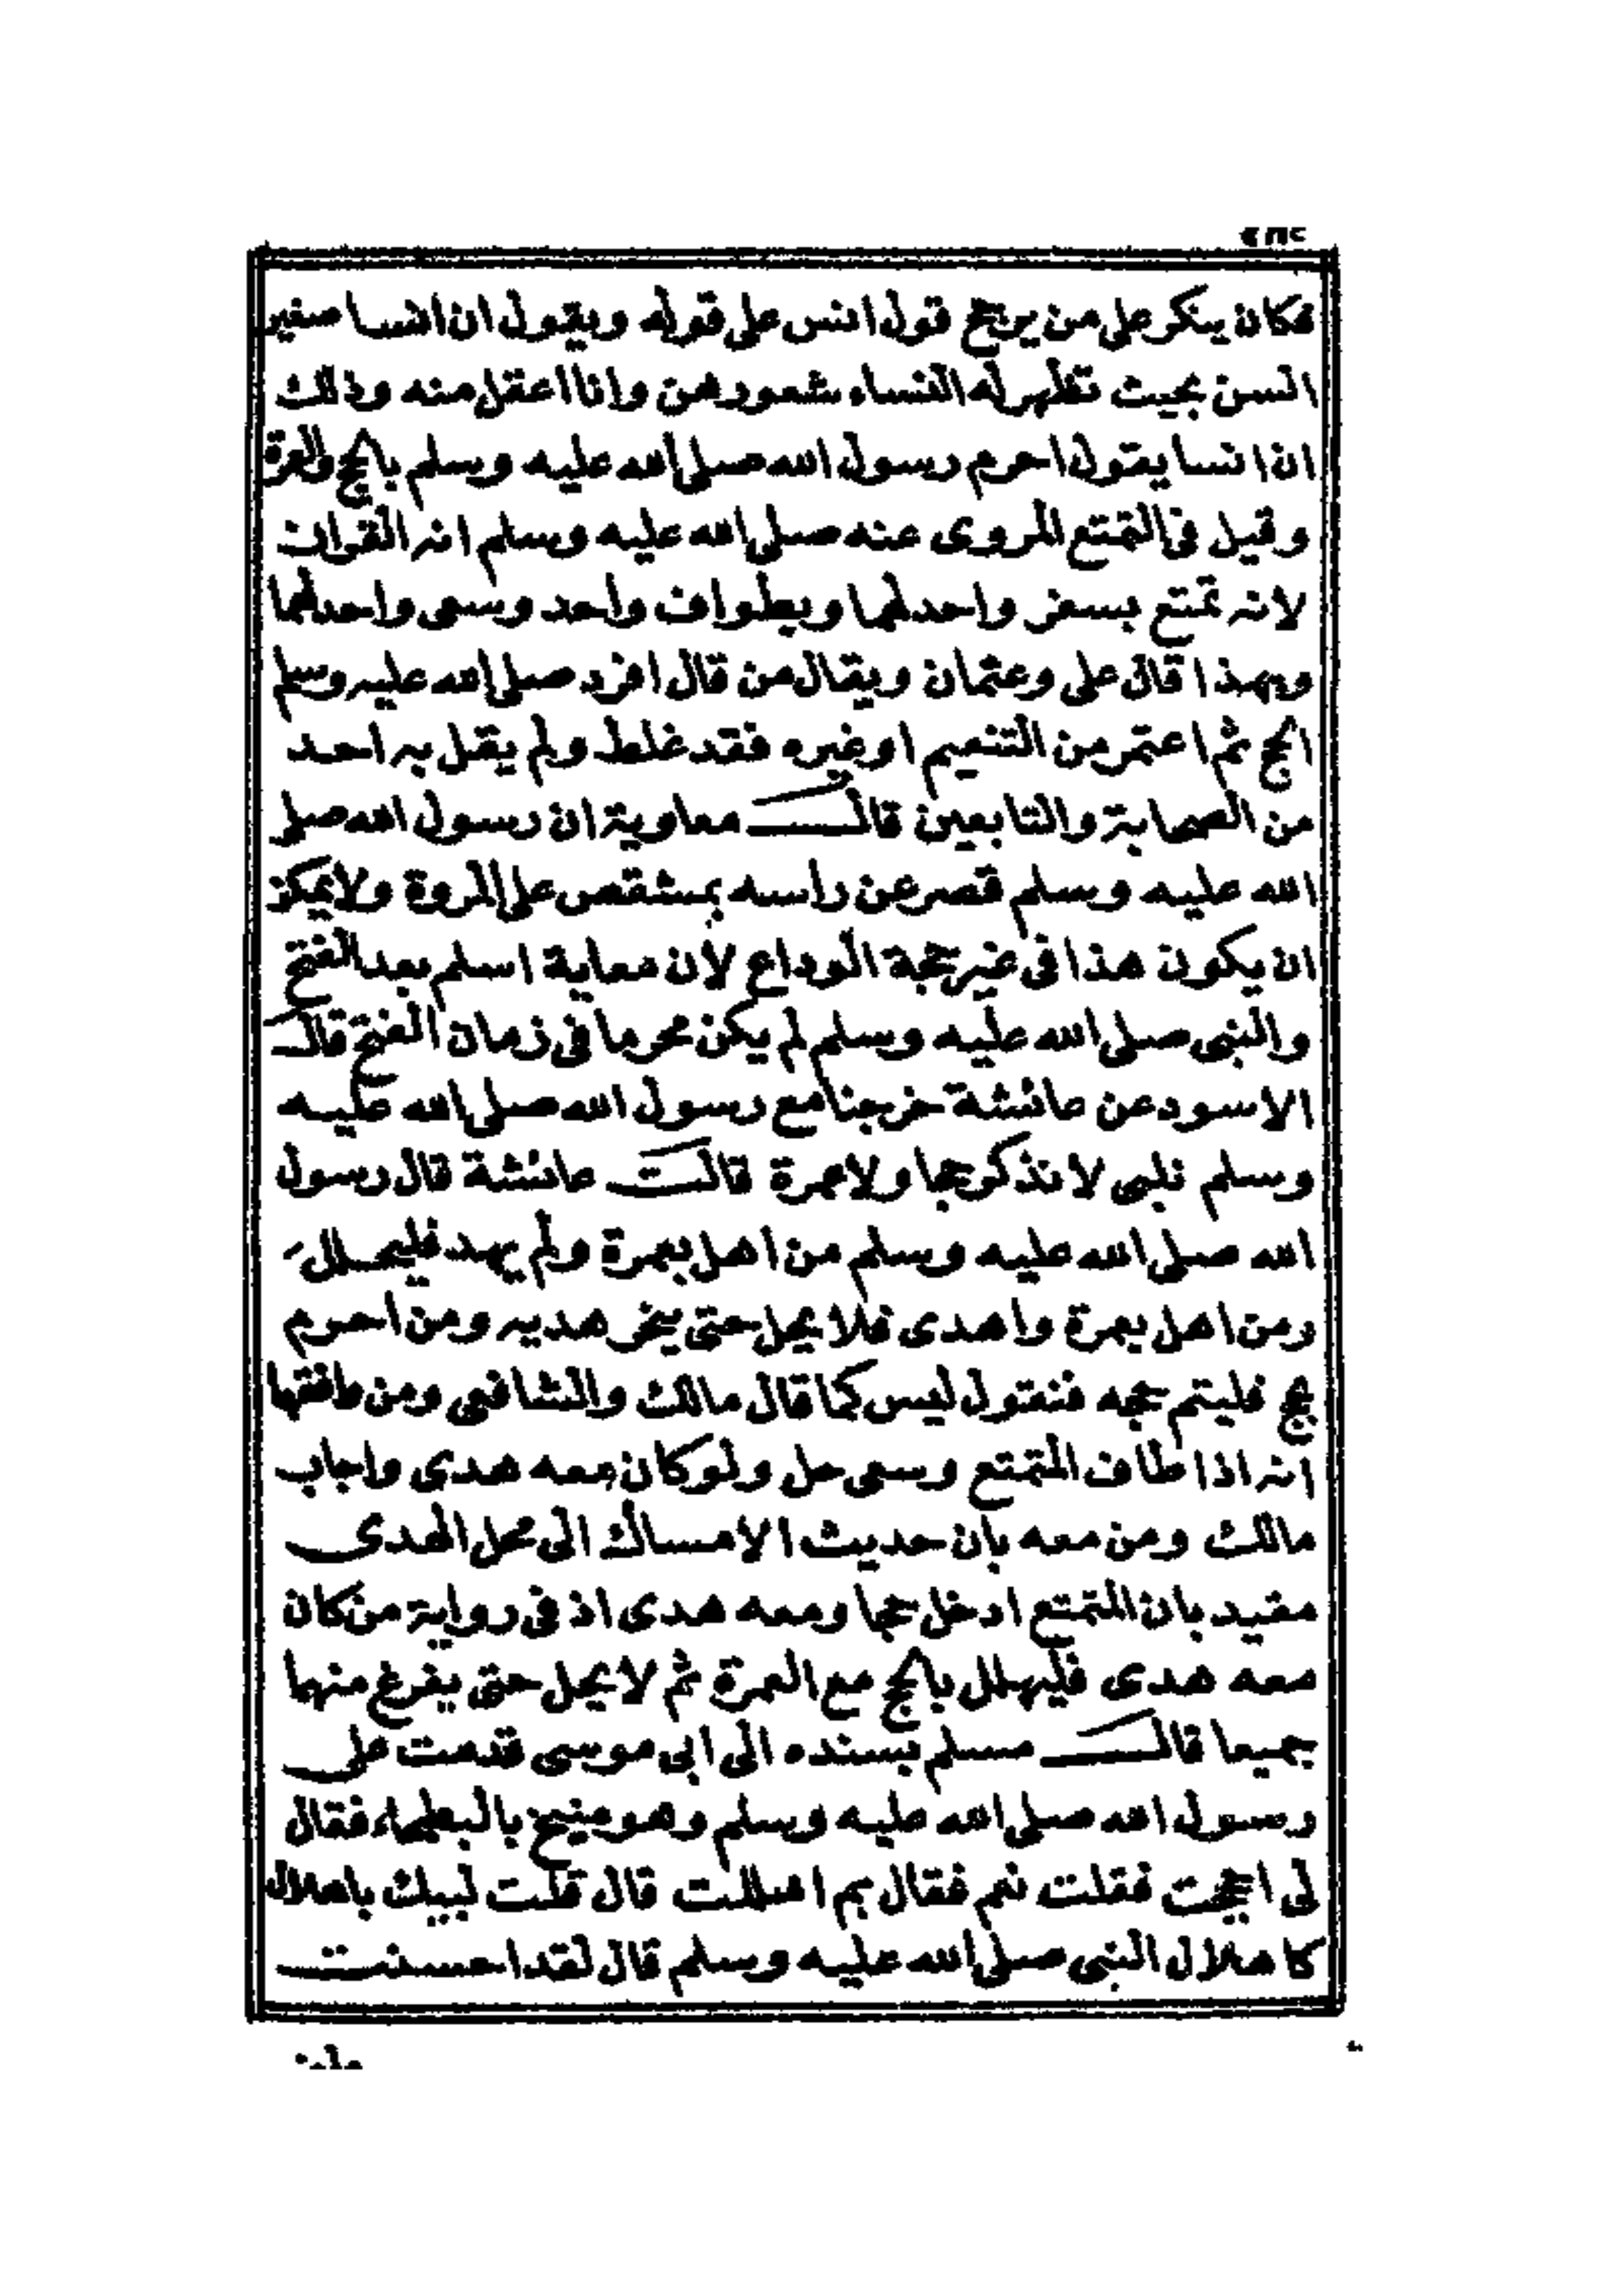 فكان ينكر على من يرجح قول انس على قوله ويقول ان انسا صغير
السن بحيث تظهر له النساء شعورهن وانا اعقل منه وذلك
ان انسا يقول احرم رسول الله صلى الله عليه وسلم بالحج والعمرة
وقيل فى التمتع المروى عنه صلى الله عليه وسلم انه القران
لانه تمتع بسفر واحد لهما وبطواف واحد وسعى واحد لهما
وبهذا قال على وعثمان ويقال من قال افرد صلى الله عليه وسلم
الحج ثم اعتمر من التنعيم اوغيره فقد غلط ولم يقل به احد
من الصحابة والتابعين قال معاوية ان رسول الله صلى
الله عليه وسلم قصر عن راسه بمشقص على المروة ولا يمكن
ان يكون هذا فى غير حجة الوداع لان معاية اسلم بعد الفتح
والنبى صلى الله عليه وسلم لم يكن محرما فى زمان الفتح قال
الاسود عن عائشة خرجنا مع رسول الله صلى الله عليه
وسلم نلبى لا نذكر حجا ولا عمرة قالت عائشة قال رسول
الله صلى الله عليه وسلم من اهل بعمرة ولم يهد فليحلل
ومن اهل بعمرة واهدى فلا يحل حتى ينحر هديه ومن احرم
بحج فليتم حجه فنقول ليس كما قال مالك والشافعى ومن وافقهما
انه اذا طاف المتمتع وسعى حل ولوكان معه هدى واجاب
مالك ومن معه بان حديث الامساك الى محل الهدى
مقيد بان المتمتع ادخل حجا ومعه هدى اذ فى رواية من كان
معه هدى فليهلل بالحج مع العمرة ثم لا يحل حتى يفرغ منهما
جميعا قال مسلم بسنده الى ابى موسى قدمت على
رسول الله صلى الله عليه وسلم وهو منيخ بالبطحاء فقال
لى احججت فقلت نعم فقال بم اهللت قال قلت لبيك باهلال
كاهلال النبى صلى الله عليه وسلم قال لقد احسنت